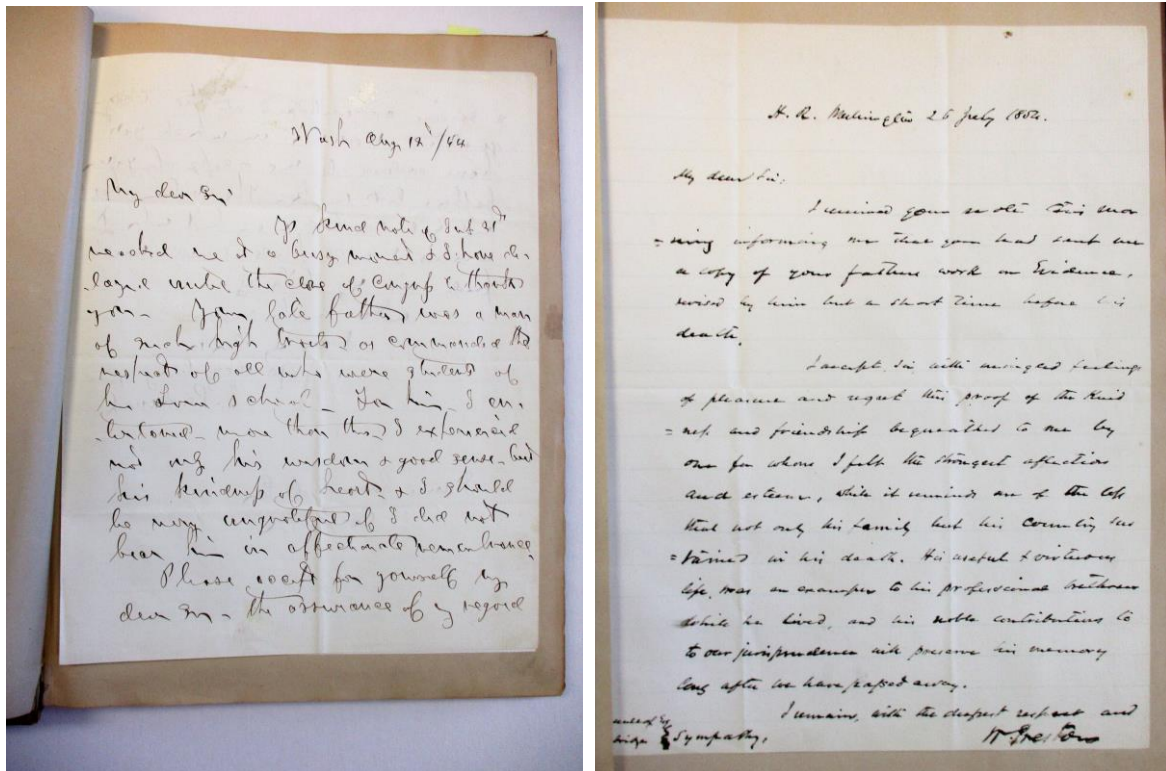 Wash Aug 12/54
My dear Sir
Yr kind note of July 21st
reached me at a busy moment & I have de-
layed until the close of Congress to thank
you - Your late father was a man
of such high traits as commanded the
respect of all who were students of
his Law school - For him, I en-
tertained more than this I experienced
not only his wisdom & good sense - but
his kindness of heart & I should
be very ungrateful if I did not
bear him in affectionate remembrance
Please accept for yourself my
dear Sir - the assurance of my regard
H. R. Washington 26 July 1854.
My dear Sir:
I received your note this mor
=ning informing me that you had sent me
a copy of your fathers work on Evidence,
revised by him but a short time before his
death.
I accept, Sir, with mingled feelings
of pleasure and regret this proof of the Kind
=ness and friendship bequeathed to me by
one for whom I felt the strongest affection
and esteem, while it reminds me of the loss
that not only his family but his country sus
=tained in his death. His useful & virtuous
life, was an example to his professional brethren
while he lived, and his noble contributions to
to our jurisprudence will preserve his memory
long after we have passed away.
I remain, with the deepest respect and
Sympathy, W. Preston